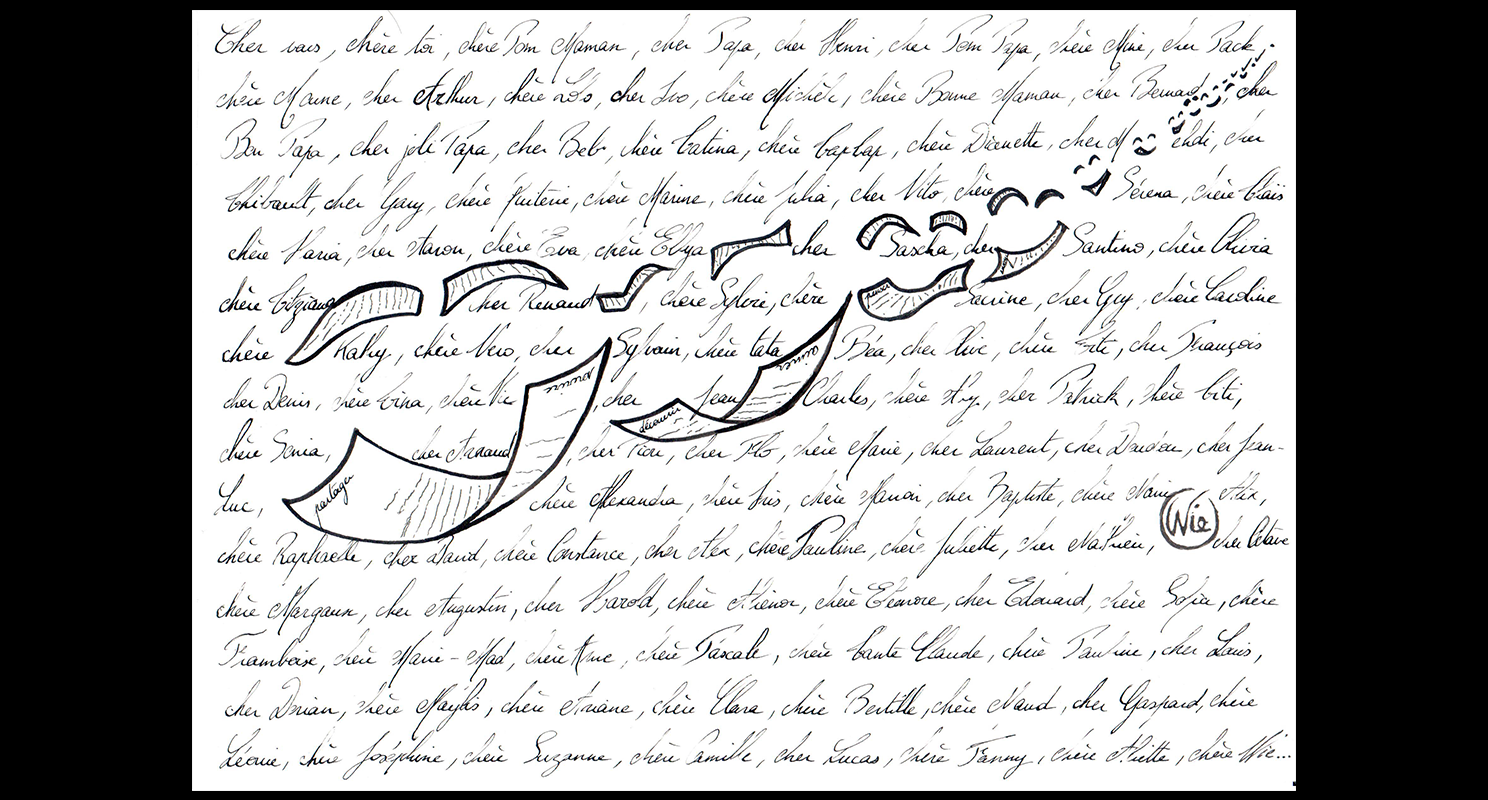 Cher vous, chère toi, chère Pom Maman, cher Papa, cher Henri, cher Pom Papa, chère Mine, cher Pack,
chère Moune, cher Arthur, chère Lolo, cher Ivo, chère Michèle, chère Bonne Maman, cher Bernard, cher
Bon Papa, cher joli Papa, cher Beb, chère Catina, chère Capcap, chère Dianette, cher Mehdi, cher
Thibault, cher Gary, chère Quiterie, chère Marine, chère Julia, cher Vito, chère Serena, chère
chère Maria, cher Aaron, chère Eva, chère Ellya cher Sascha, cher Santino, chère Olivia
chère Tiziana cher Renaud, chère Sylvie, chère penser cher Guy, chère Caroline
chère Kathy, chère Vero, cher Sylvain, chère tata aimer Béa, cher Clive, chère cher François
cher Denis, chère Tina, chère Vic sourire, cher Jean Charles, chère cher Patrick, chère Titi,
chère Sonia, cher Arnaud découvrir, cher cher Flo, chère Marie, cher Laurent, cher Doudou, cher Jean-
Luc, partager chère Alexandra, chère Iris, chère Manon, cher Baptiste, chère Alix,
chère Raphaelle, cher chère Constance, cher Alex, chère Pauline, chère Juliette, cher Mathieu, Wie cher Octave
chère Margaux, cher Augustin, cher Harold, chère Aliénor, chère Eléonore, cher Edouard, chère Sofia, chère
Framboise, chère Marie-Mad, chère Anne, chère Pascale, chère Tante Claude, chère Pauline, cher Louis,
cher Dorian, chère Maylis, chère Ariane, chère Clara, chère Bertille, chère Maud, cher Gaspard, chère
Léonie, chère Joséphine, chère Suzanne, chère Camille, cher Lucas, chère Fanny, chère Aliette, chère Wie...